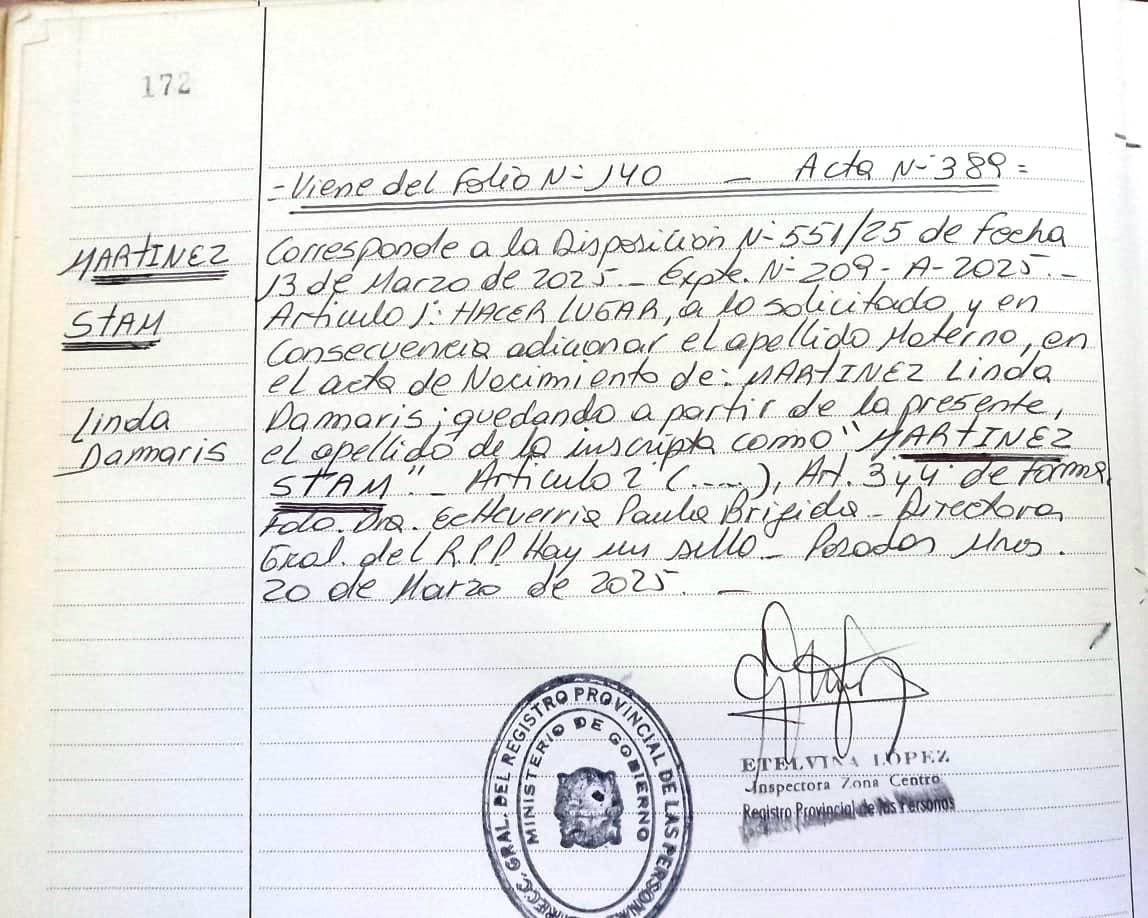 172
- Viene del Folio N- 140 _ Acta N- 389 =
MARTINEZ
STAM
Linda
Dammaris
Corresponde a la Disposición N- 551/25 de fecha
13 de Marzo de 2025._ Expte. N- 209 - A - 2025._
Artículo 1: HACER LUGAR, a lo solicitado y en
Consecuencia adicionar el apellido Materno, en
el acta de Nacimiento de: MARTINEZ Linda
Dammaris; quedando a partir de la presente,
el apellido de la inscripta como "MARTINEZ
STAM"._ Artículo 2 (....), Art. 3 y 4 de forma
Fdo. Dra. Echeverria Paula Brigida _ Directora
Gral. del R.P.P. Hay un sello _ Posadas Mnes.
20 de Marzo de 2025. _
ETELVINA LOPEZ
Inspectora Zona Centro
Registro Provincial de las Personas
DIRECC. GRAL. DEL REGISTRO PROVINCIAL DE LAS PERSONAS
MINISTERIO DE GOBIERNO